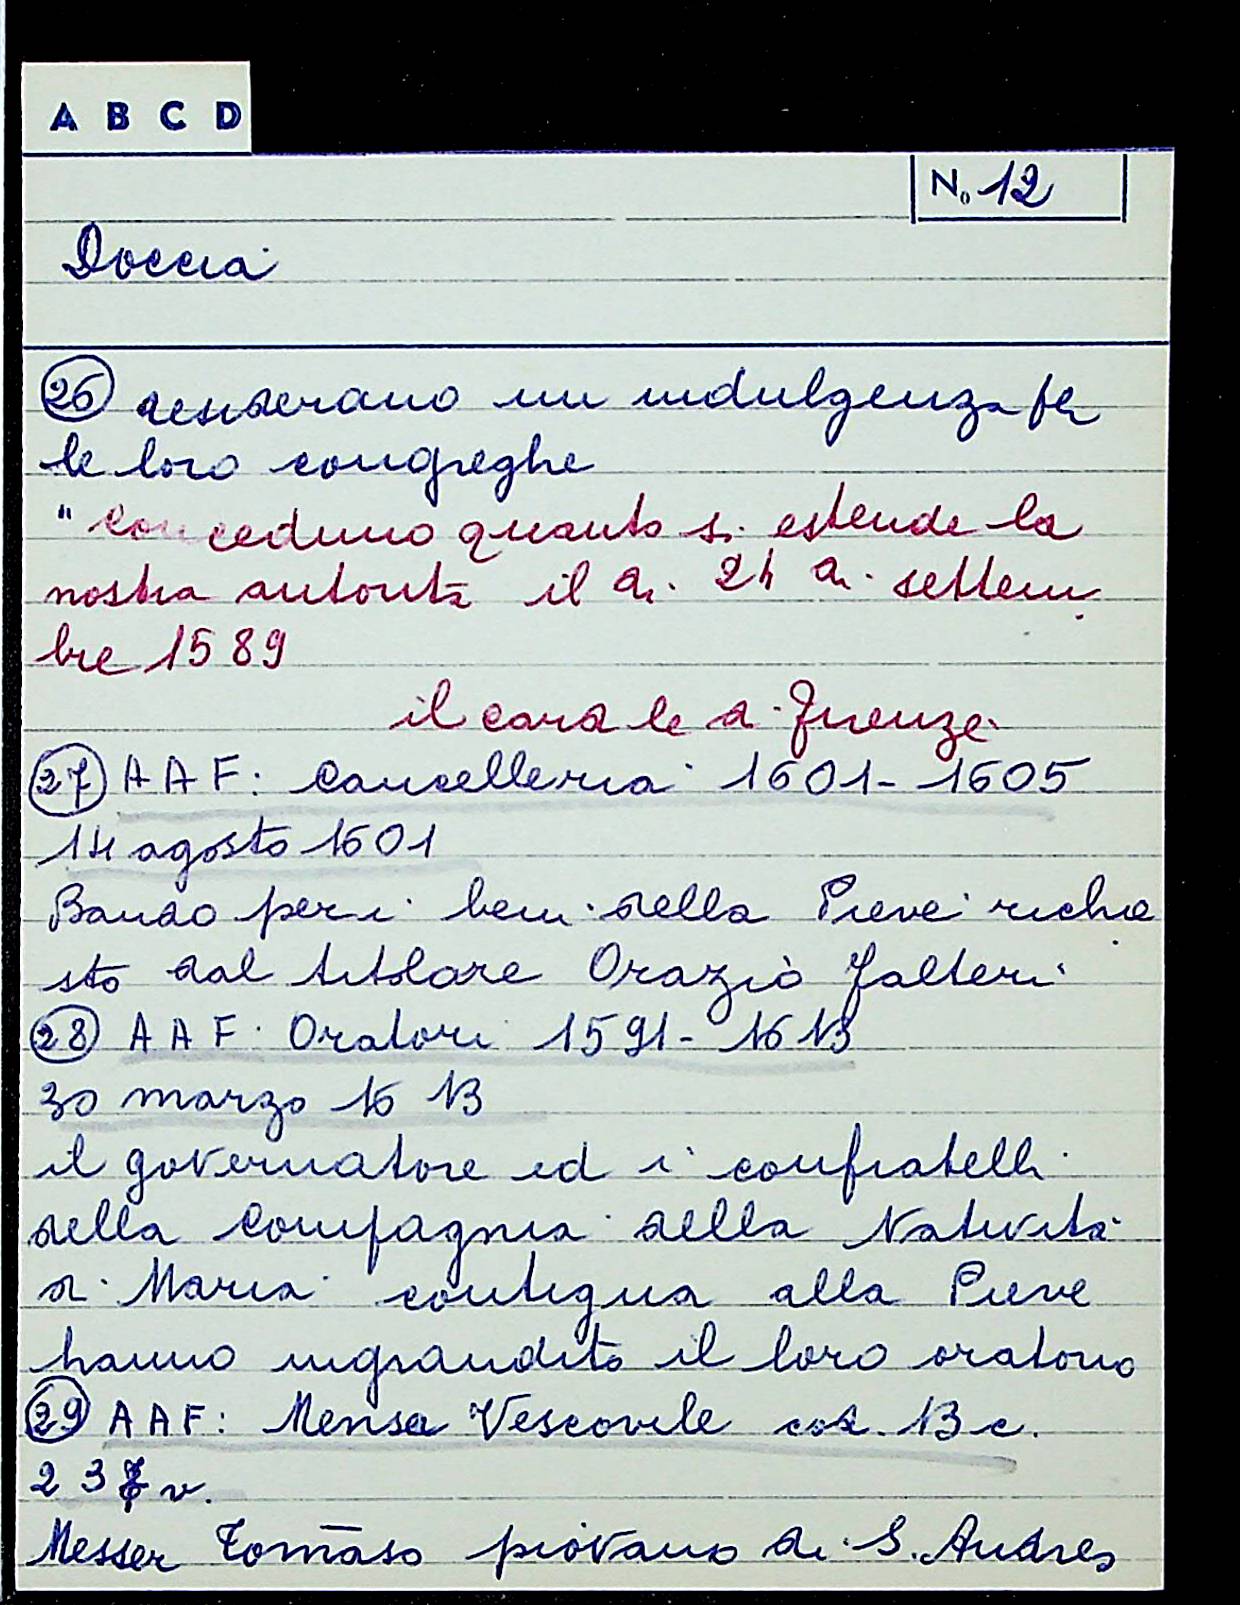 A B C D
No 12
Doccia
26 desiderano un indulgenza per
le loro congreghe
"Concediamo quanto si estende la
nostra autorità il di 24 di settem
bre 1589
il card le di Firenze
27 AAF: Cancelleria 1601-1605
14 agosto 1601
Bando per i beni della Pieve richie
sto dal titolare Orazio Falteri
28 AAF: Oratori 1591-1613
30 marzo 1613
il governatore ed i confratelli
della Compagnia della Natività
di Maria contigua alla Pieve
hanno ingrandito il loro oratorio
29 AAF: Mensa Vescovile cod. 13 c.
23 v.
Messer Tomaso piovano di S. Andrea